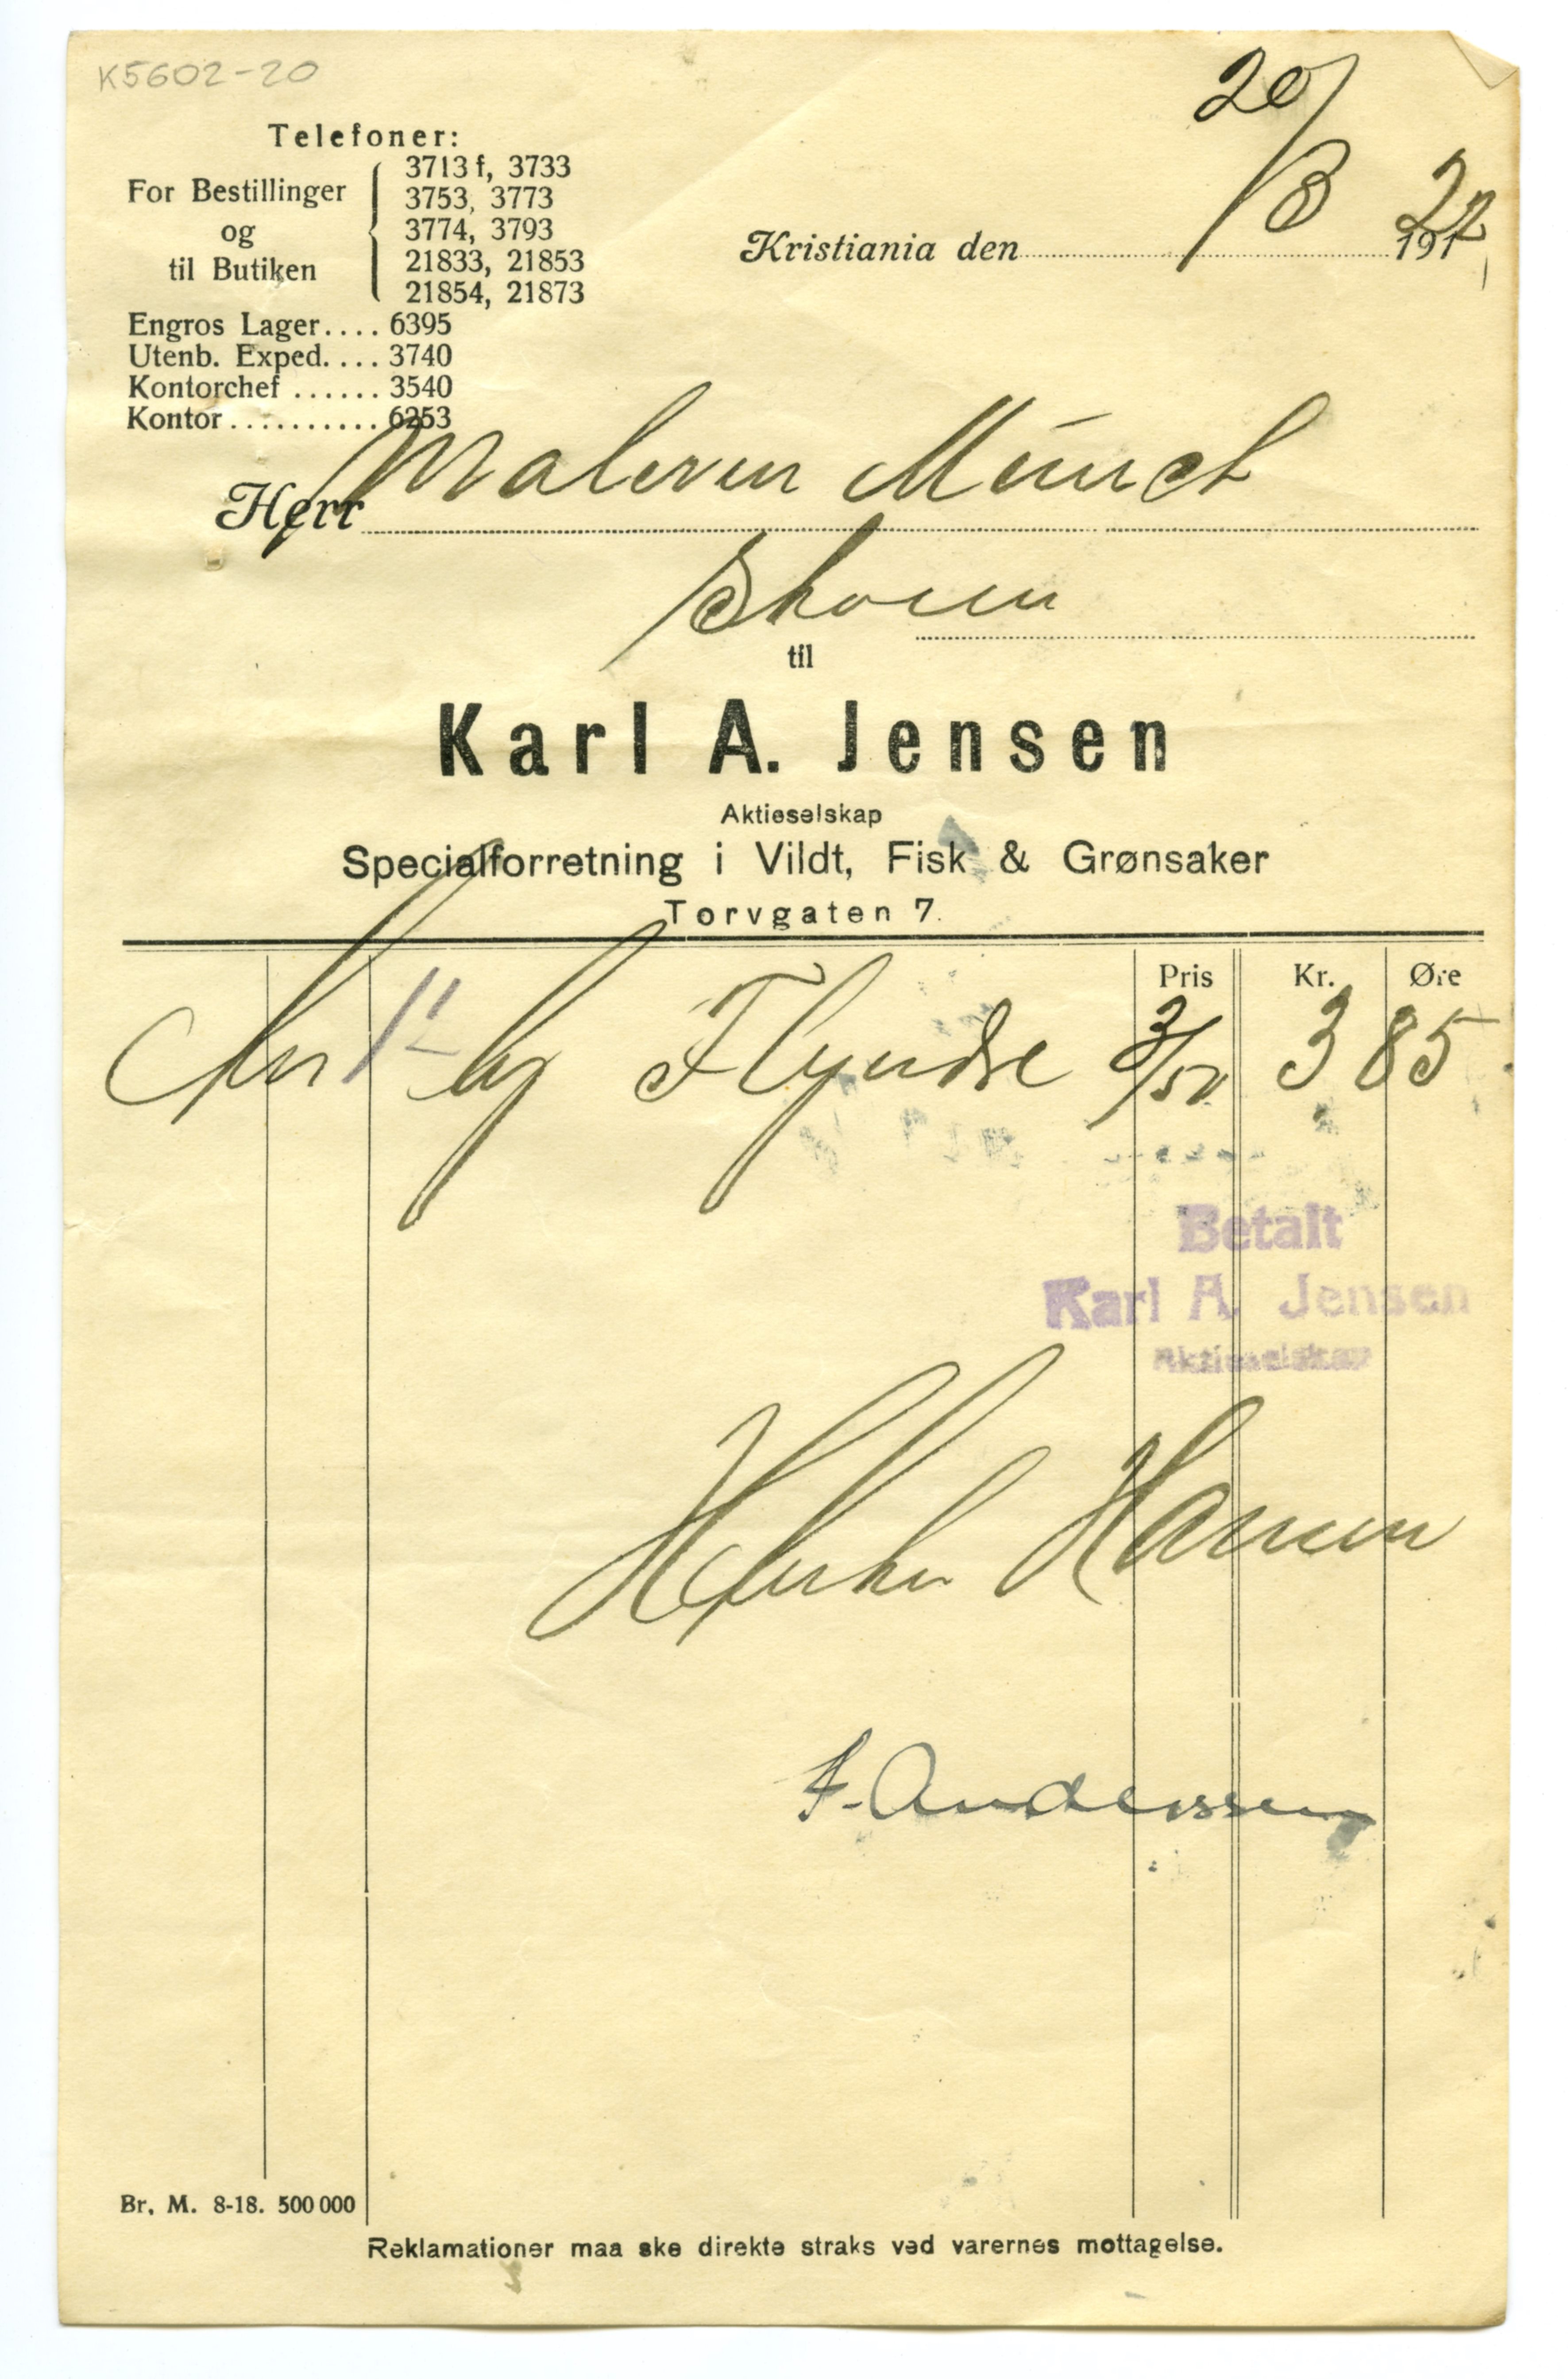 K5602-20
Telefoner:
For Bestillinger
og
til Butiken
3713 f, 3733
3753, 3773
3774, 3793
21833, 21853
21854, 21873
Engros Lager.... 6395
Utenb. Exped. ... 3740
Kontorchef ...... 3540
Kontor .......... 6253
20/8 22
Kristiania den 191
Herr Maleren Munch
Skøien
til
Karl A. Jensen
Aktieselskap
Specialforretning i Vildt, Fisk & Grønsaker
Torvgaten 7.
Pris Kr. Øre
11 kg Flyndre 3/50 3 85
Betalt
Karl A. Jensen
Aktieselskap
Hansen
F. Anderssen
Br. M. 8-18. 500 000
Reklamationer maa ske direkte straks ved varernes mottagelse.